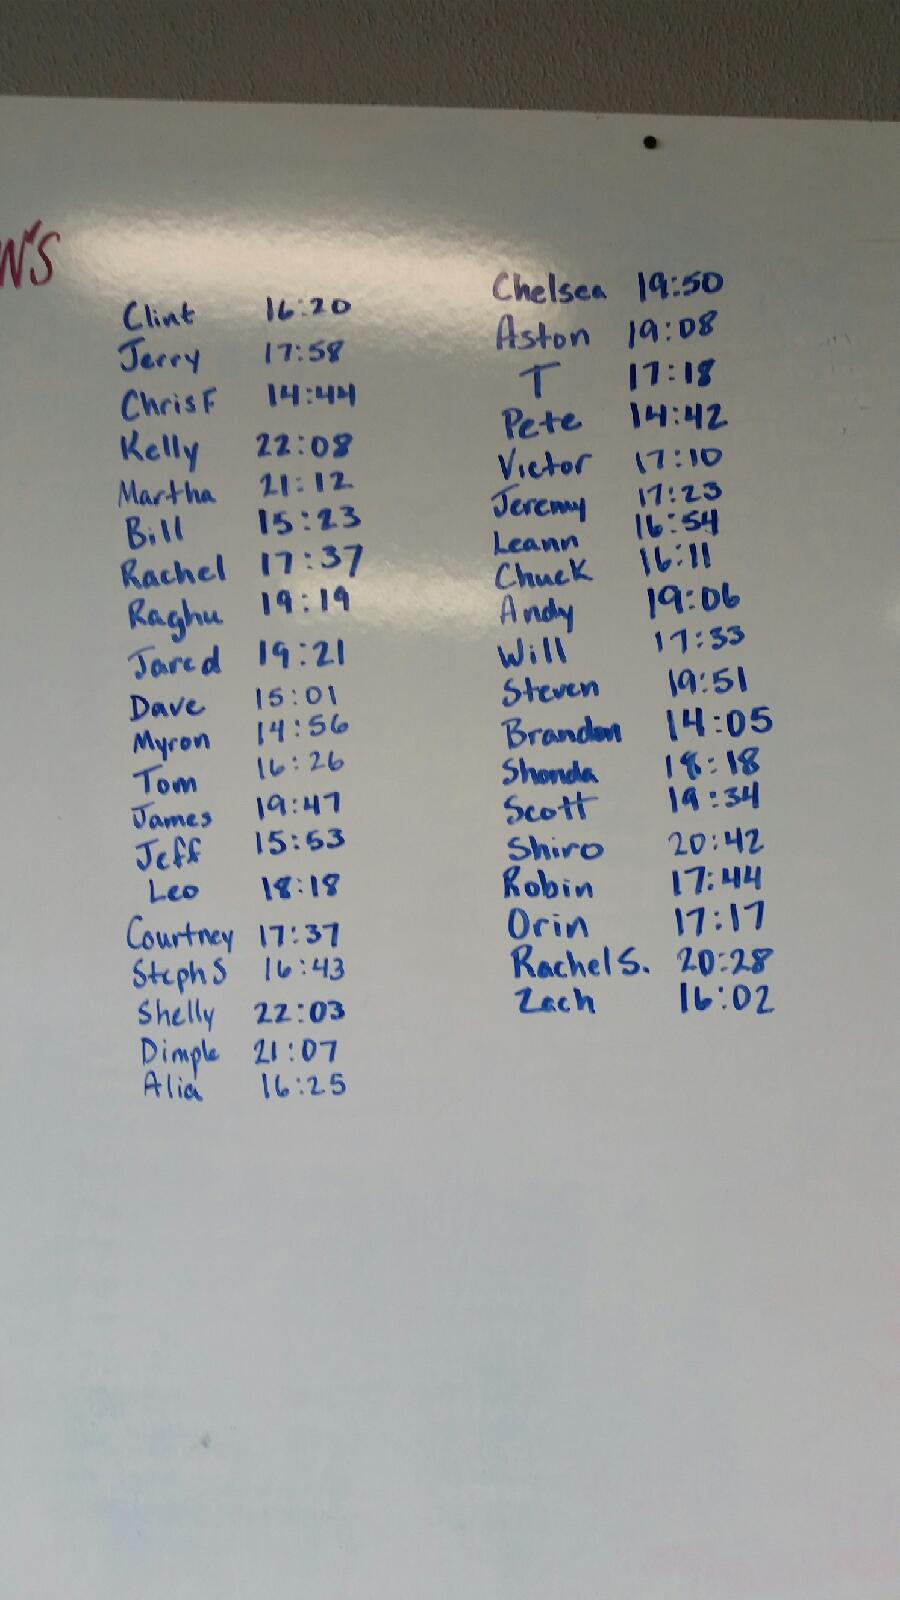 W'S
Clint 16:20
Jerry 17:58
Chris F 14:44
Kelly 22:08
Martha 21:12
Bill 15:23
Rachel 17:37
Raghu 19:19
Jared 19:21
Dave 15:01
Myron 14:56
Tom 16:26
James 19:47
Jeff 15:53
Leo 18:18
Courtney 17:37
Steph S 16:43
Shelly 22:03
Dimple 21:07
Alia 16:25
Chelsea 19:50
Aston 19:08
T 17:18
Pete 14:42
Victor 17:10
Jeremy 17:23
Leann 16:54
Chuck 16:11
Andy 19:06
Will 17:33
Steven 19:51
Brandon 14:05
Shonda 18:18
Scott 19:34
Shiro 20:42
Robin 17:44
Orin 17:17
Rachel S. 20:28
Zach 16:02